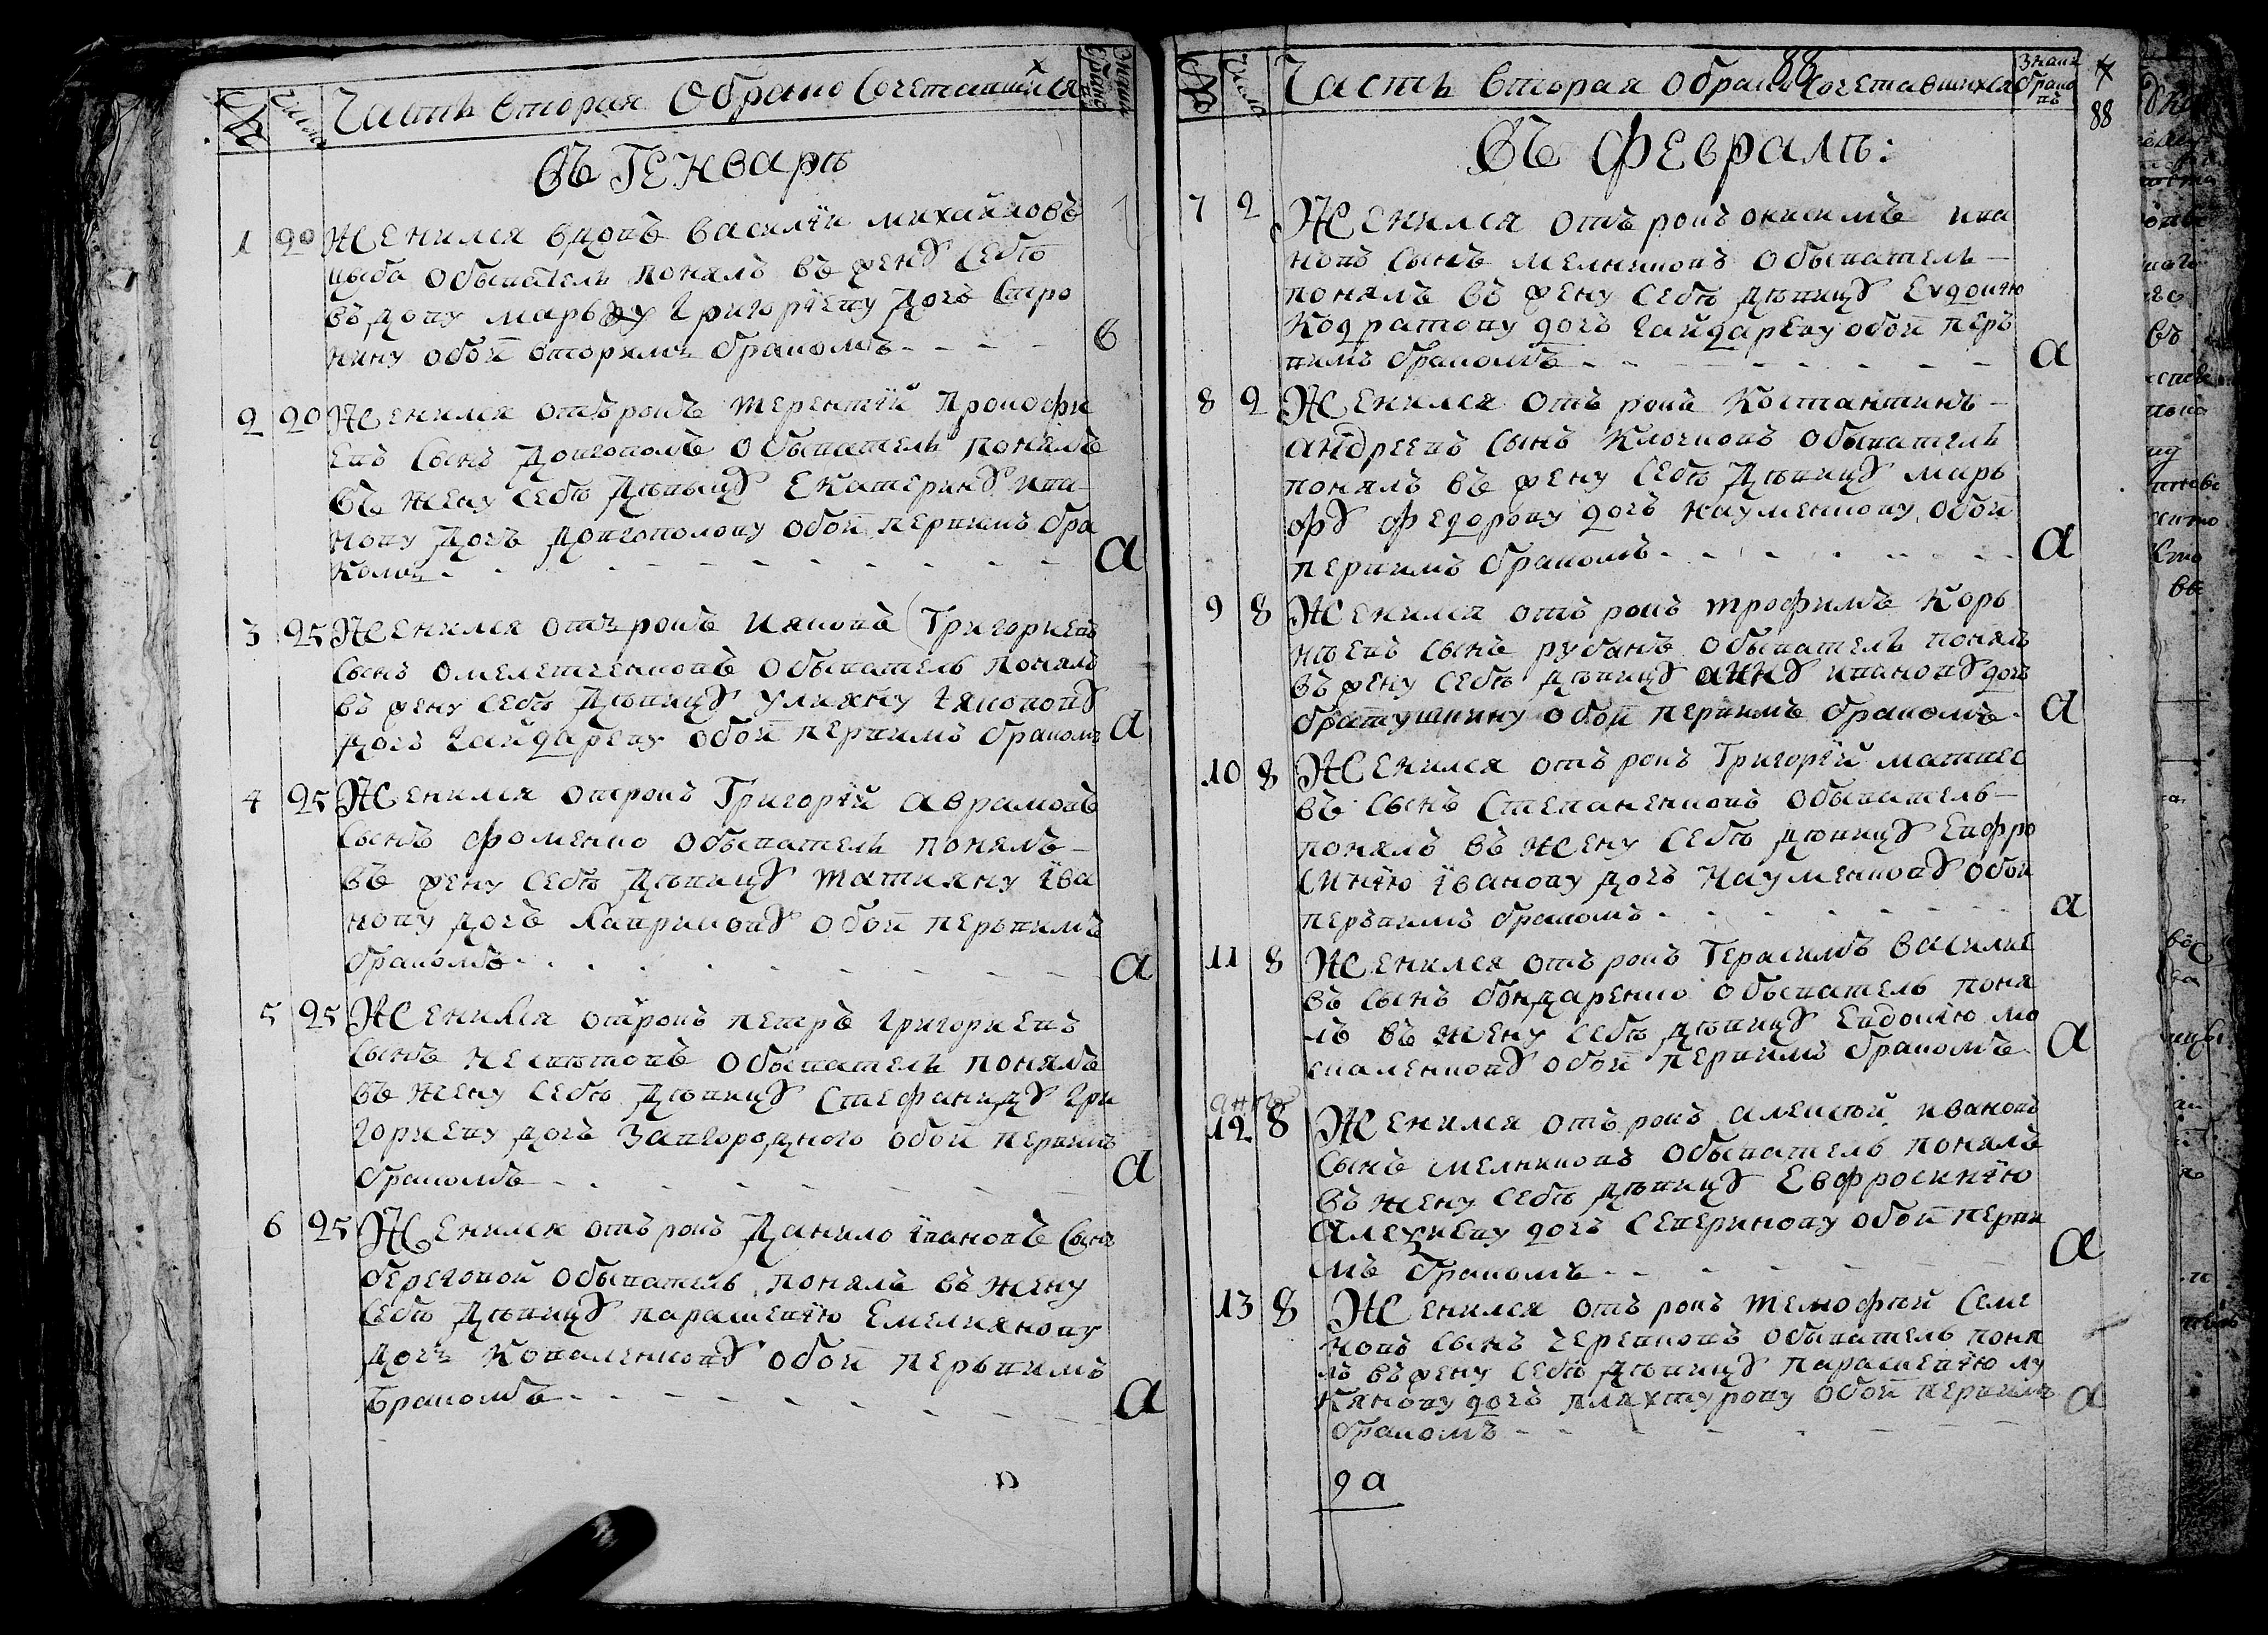 № Число Часть вторая о брако сочетавшихся
Въ Генварѣ
1 20 Женился вдовъ Василїй Михайловъ
цыба обыватель понялъ въ жену себѣ
вдову Марьѳу Григорїеву дочь Стро
нину обои вторымъ бракомъ в
2 20 Женился отърокъ Терентїй Прокофи
евъ сынъ Довгополъ обыватель понялъ
въ жену себѣ дѣвыцу Екатерину Ива
нову дочь Довгополову обои первимъ бра
комъ а
3 25 Женился отърокъ Иаковъ Григориевъ
сынъ Омелетченковъ обыватель понялъ
въ жену себѣ дѣвицу Улияну Іяковову
дочь Гайдареву обои первимъ бракомъ а
4 25 Женился отрокъ Григорїй Аврамовъ
сынъ Фоменко обыватель понялъ
въ жену себѣ дѣвицу Татияну Іва
нову дочь Лавринову обои перьвимъ
бракомъ а
5 25 Женился отрокъ Петръ Григориевъ
сынъ обыватель понялъ
въ жену себѣ дѣвицу Стефаниду Гри
гориеву дочь Завгородного обои первимъ
бракомъ а
6 25 Женился отърокъ Данило Івановъ сынъ
береговой обыватель понялъ въ жену
себѣ дѣвицу Параскевїю Емелиянову
дочь Коваленкову обои перьвимъ
бракомъ а
№ Число Часть вторая о бракосочетавшихся 88
88
Въ Февралѣ:
7 2 Женился отърокъ Онисимъ Ива
новъ сынъ Мелниковъ обыватель
понялъ въ жену себѣ дѣвицу Еѵдокию
Кодратову дочь Гайдареву обои перъ
вимъ бракомъ а
8 2 Женился отърокъ Костантинъ
Андреевъ сынъ Клочковъ обыватель
понялъ въ жену себѣ дѣвицу Марь
фу Федорову дочь Науменкову обои
первимъ бракомъ а
9 8 Женился отърокъ Трофимъ Корь
нѣевъ сынъ Рубанъ обыватель понялъ
въ жену себѣ дѣвицу Анну Иванову дочь
Братушнину обои первимъ бракомъ а
10 8 Женился отърокъ Григорїй Матвее
въ сынъ Степаненковъ обыватель
понялъ въ жену себѣ дѣвицу Евфро
синїю Іванову дочь Науменкову обои
перъвимъ бракомъ а
11 8 Женился отърокъ Герасимъ Василье
въ сынъ Бондаренко обыватель поня
лъ въ жену себѣ дѣвицу Евдокїю Мо
скаленкову обои первимъ бракомъ а
12 8 Женился отърокъ Алексѣй Ивановъ
сынъ Мелниковъ обыватель понялъ
въ жену себѣ дѣвицу Евфросинїю
Алеѯиеву дочь Северинову обои перви
мъ бракомъ а
13 8 Женился отърокъ Темофѣй Семе
новъ сынъ Черевковъ обыватель поня
лъ въ жену себѣ дѣвицу Параскевїю Лу
кянову дочь Пляхтурову обои первимъ
бракомъ а
9 а